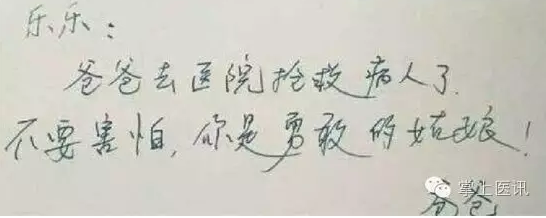 乐乐：
爸爸去医院抢救病人了.
不要害怕,你是勇敢的姑娘!
爸爸
掌上医讯